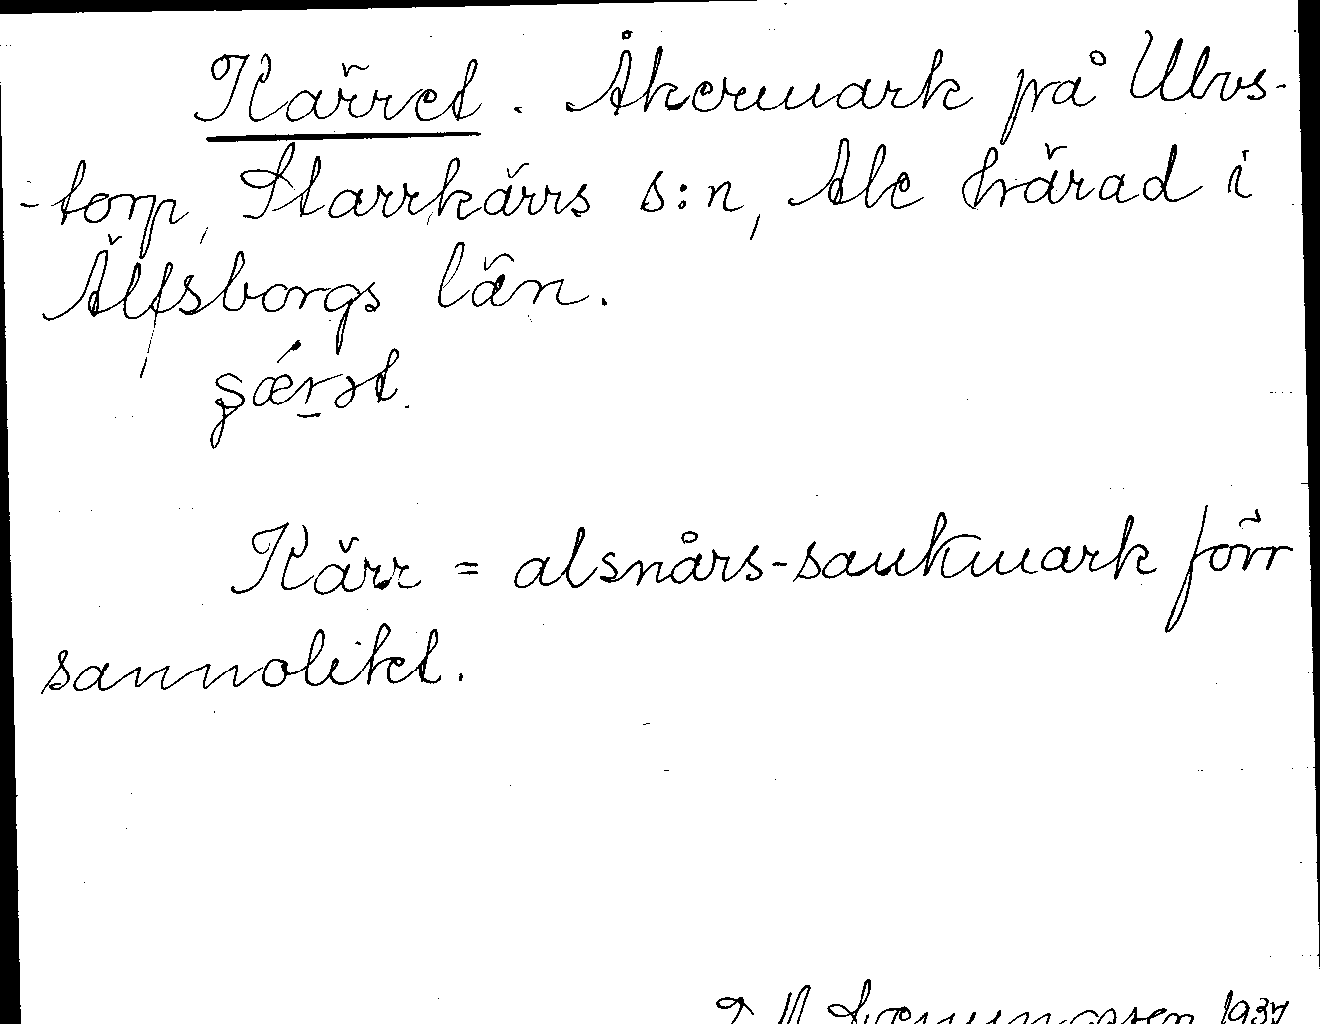 Kärret. Åkermark på Ulvs-
-torp, Starrkärrs s:n, Ale härad i
Älfsborgs län.
Kärr = alsnårs-sankmark förr
sannolikt.
1937